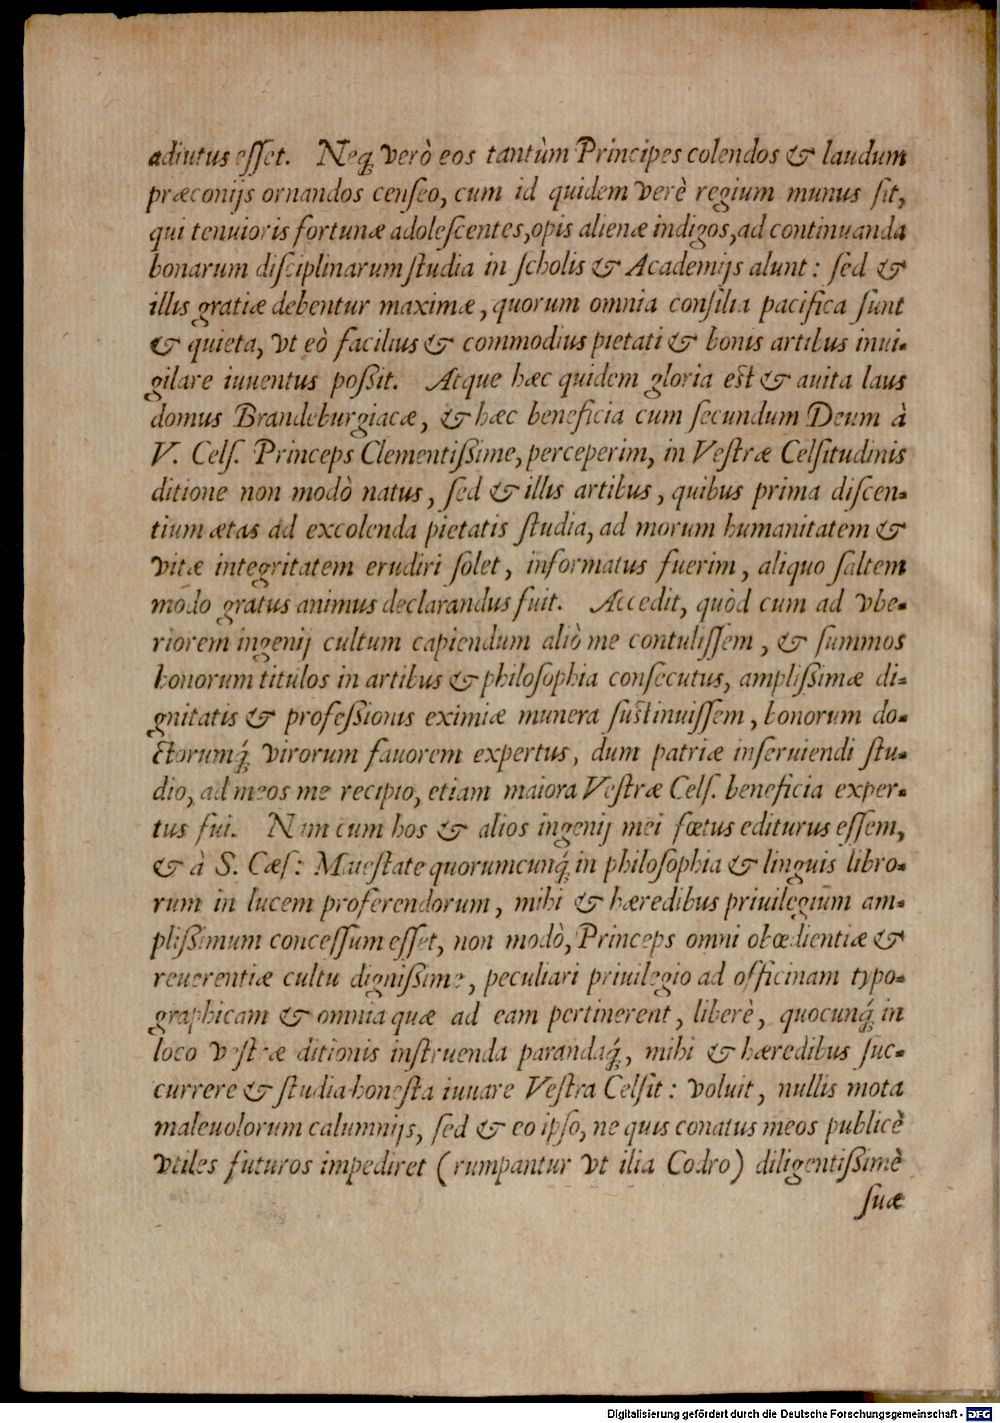 adiutus eſſet. Neq; verò eos tantùm Principes colendos & laudum
præconijs ornandos cenſeo, cum id quidem verè regium munus ſit,
qui tenuioris fortunæ adoleſcentes, opis alienæ indigos, ad continuanda
bonarum diſciplinarum ſtudia in ſcholis & Academijs alunt: ſed &
illis gratiæ debentur maximæ, quorum omnia conſilia pacifica ſunt
& quieta, vt eò facilius & commodius pietati & bonis artibus inui-
gilare iuuentus poßit. Atque hæc quidem gloria est & auita laus
domus Brandeburgiacæ, & hæc beneficia cum ſecundum Deum à
V. Celſ. Princeps Clementißime, perceperim, in Veſtræ Celſitudinis
ditione non modò natus, ſed & illis artibus, quibus prima diſcen-
tium ætas ad excolenda pietatis ſtudia, ad morum humanitatem &
vitæ integritatem erudiri ſolet, informatus fuerim, aliquo ſaltem
modo gratus animus declarandus fuit. Accedit, quòd cum ad vbe-
riorem ingenij cultum capiendum aliò me contuliſſem, & ſummos
honorum titulos in artibus & philoſophia conſecutus, amplißimæ di-
gnitatis & profeßionis eximiæ munera ſustinuiſſem, bonorum do-
ctorumq́; virorum fauorem expertus, dum patriæ inſeruiendi ſtu-
dio, ad meos me recipio, etiam maiora Veſtræ Celſ. beneficia exper-
tus fui. Nam cum hos & alios ingenij mei fœtus editurus eſſem,
& à S. Cæſ: Maieſtate quorumcunq́; in philoſophia & linguis libro-
rum in lucem proferendorum, mihi & hæredibus priuilegium am-
plißimum conceſſum eſſet, non modò, Princeps omni obœdientiæ &
reuerentiæ cultu dignißime, peculiari priuilegio ad officinam typo-
graphicam & omnia quæ ad eam pertinerent, liberè, quocunq́; in
loco veſtræ ditionis inſtruenda parandaq́;, mihi & hæredibus ſuc-
currere & ſtudia honeſta iuuare Veſtra Celſit: voluit, nullis mota
maleuolorum calumnijs, ſed & eo ipſo, ne quis conatus meos publicè
vtiles futuros impediret (rumpantur vt ilia Codro) diligentißimè
ſuæ
Digitalisierung gefördert durch die Deutsche Forschungsgemeinschaft - DFG